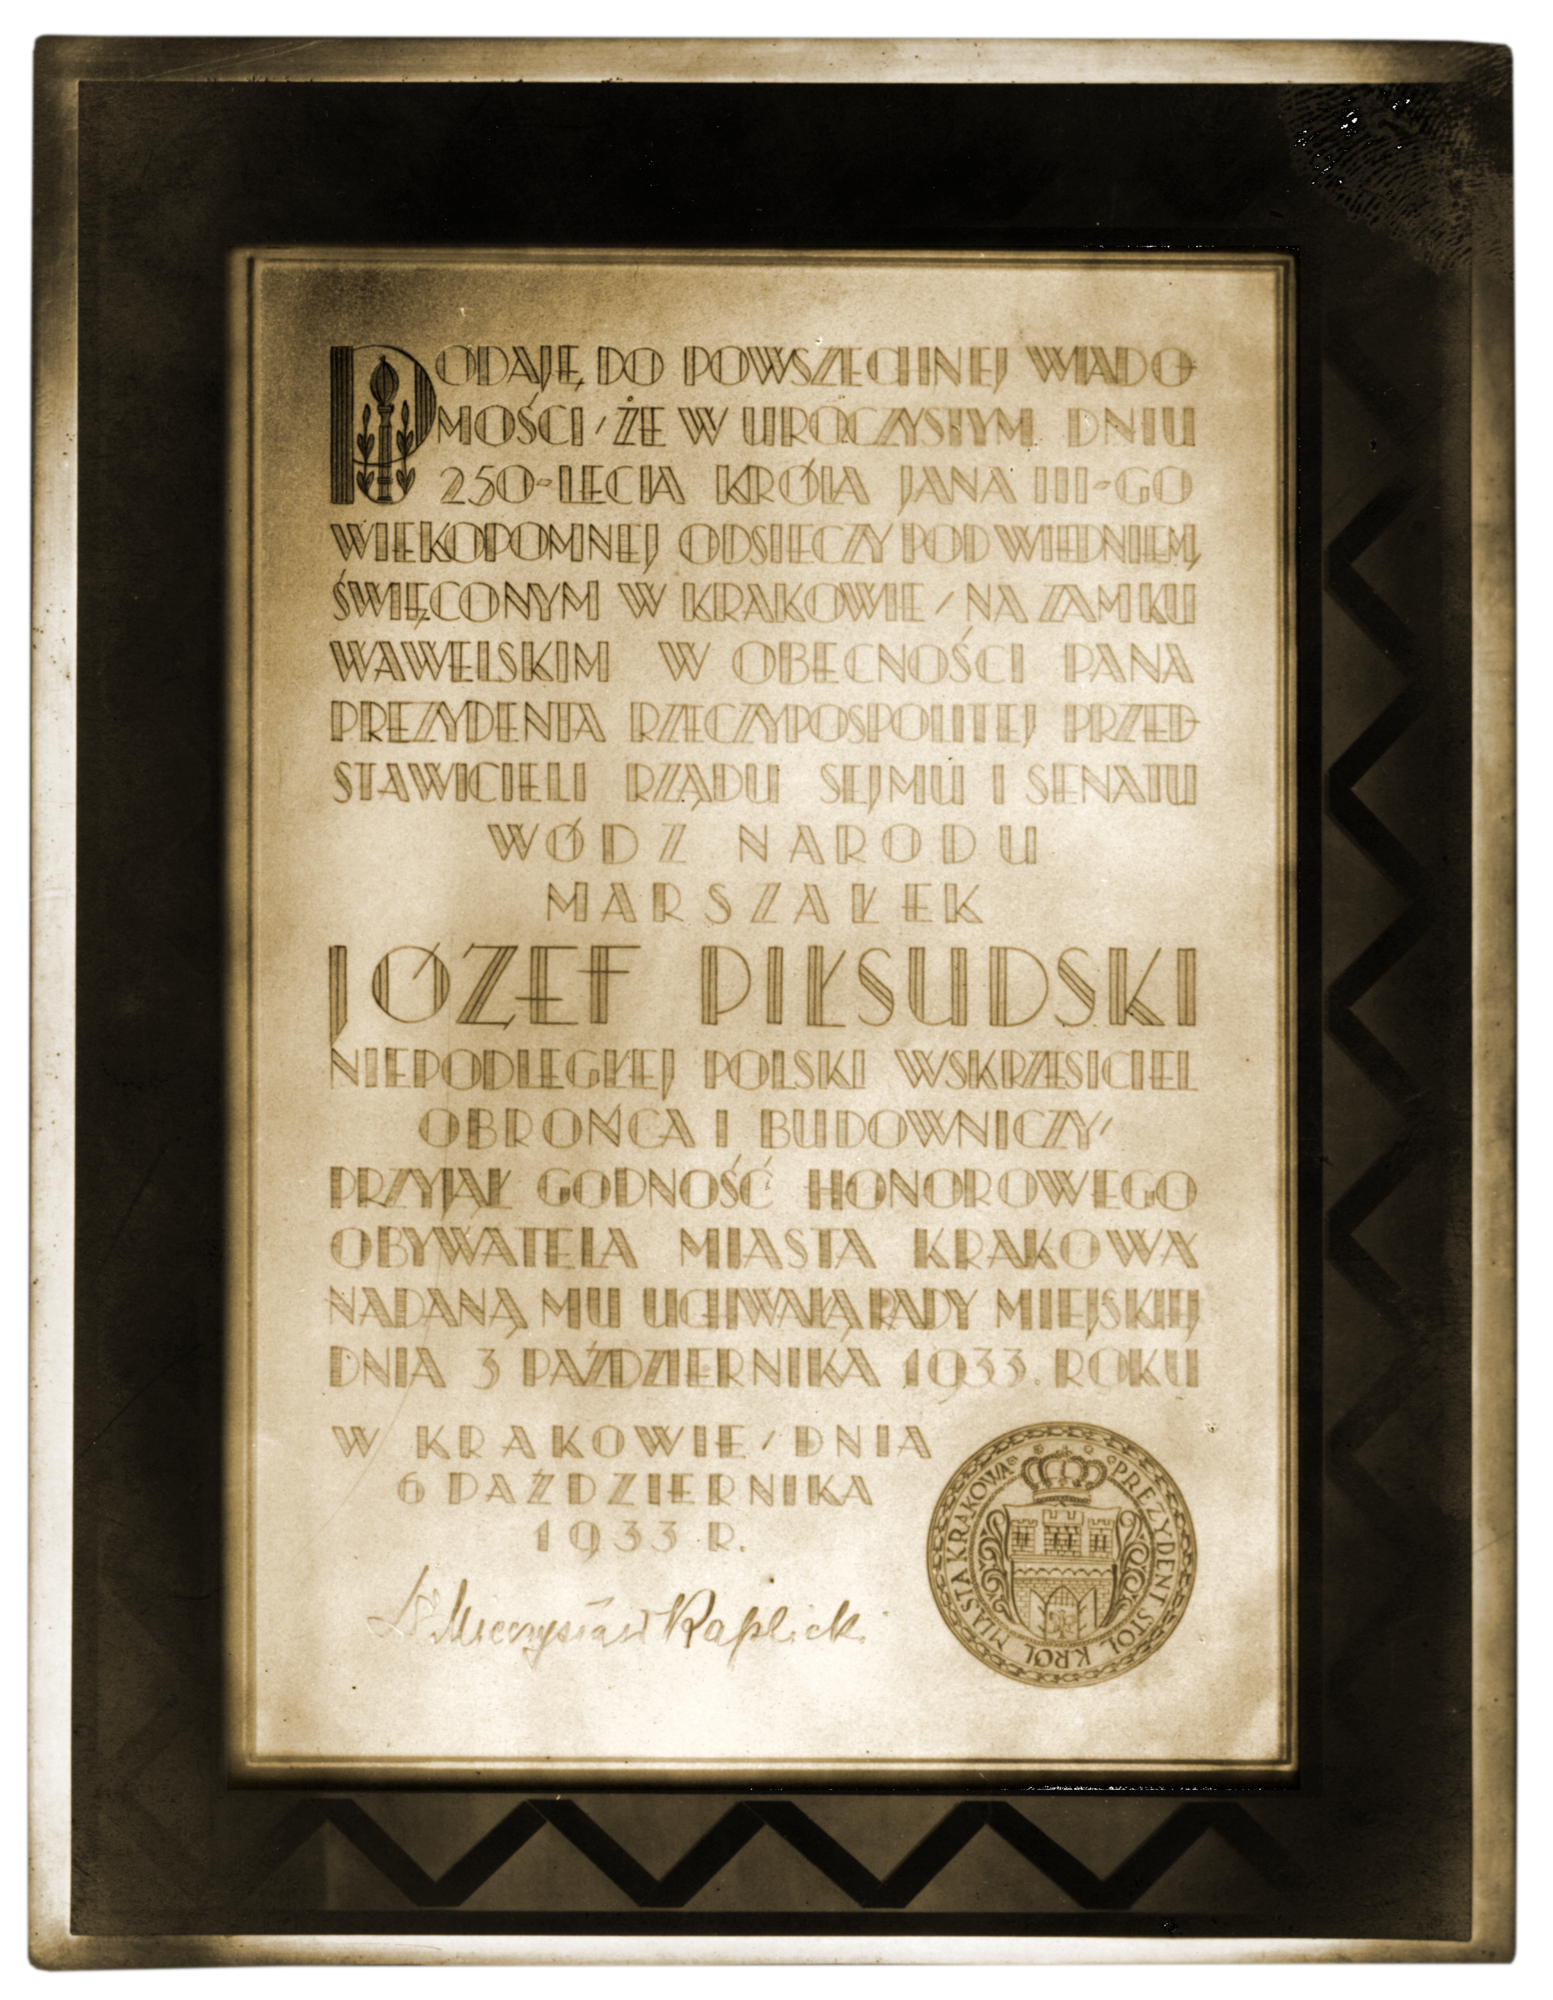 PODAJĘ DO POWSZECHNEJ WIADO-
MOŚCI, ŻE W UROCZYSTYM DNIU
250-LECIA KRÓLA JANA III-GO
WIEKOPOMNEJ ODSIECZY POD WIEDNIEM,
ŚWIĘCONYM W KRAKOWIE, NA ZAMKU
WAWELSKIM W OBECNOŚCI PANA
PREZYDENTA RZECZYPOSPOLITEJ PRZED-
STAWICIELI RZĄDU SEJMU I SENATU
WÓDZ NARODU
MARSZAŁEK
JÓZEF PIŁSUDSKI
NIEPODLEGŁEJ POLSKI WSKRZESICIEL
OBROŃCA I BUDOWNICZY,
PRZYJĄŁ GODNOŚĆ HONOROWEGO
OBYWATELA MIASTA KRAKOWA
NADANĄ MU UCHWAŁĄ RADY MIEJSKIEJ
DNIA 3 PAŹDZIERNIKA 1933. ROKU
W KRAKOWIE, DNIA
6 PAŹDZIERNIKA
1933 R.
Dr Mieczysław Kaplicki
PREZYDENT STOŁ KRÓL MIASTA KRAKOWA